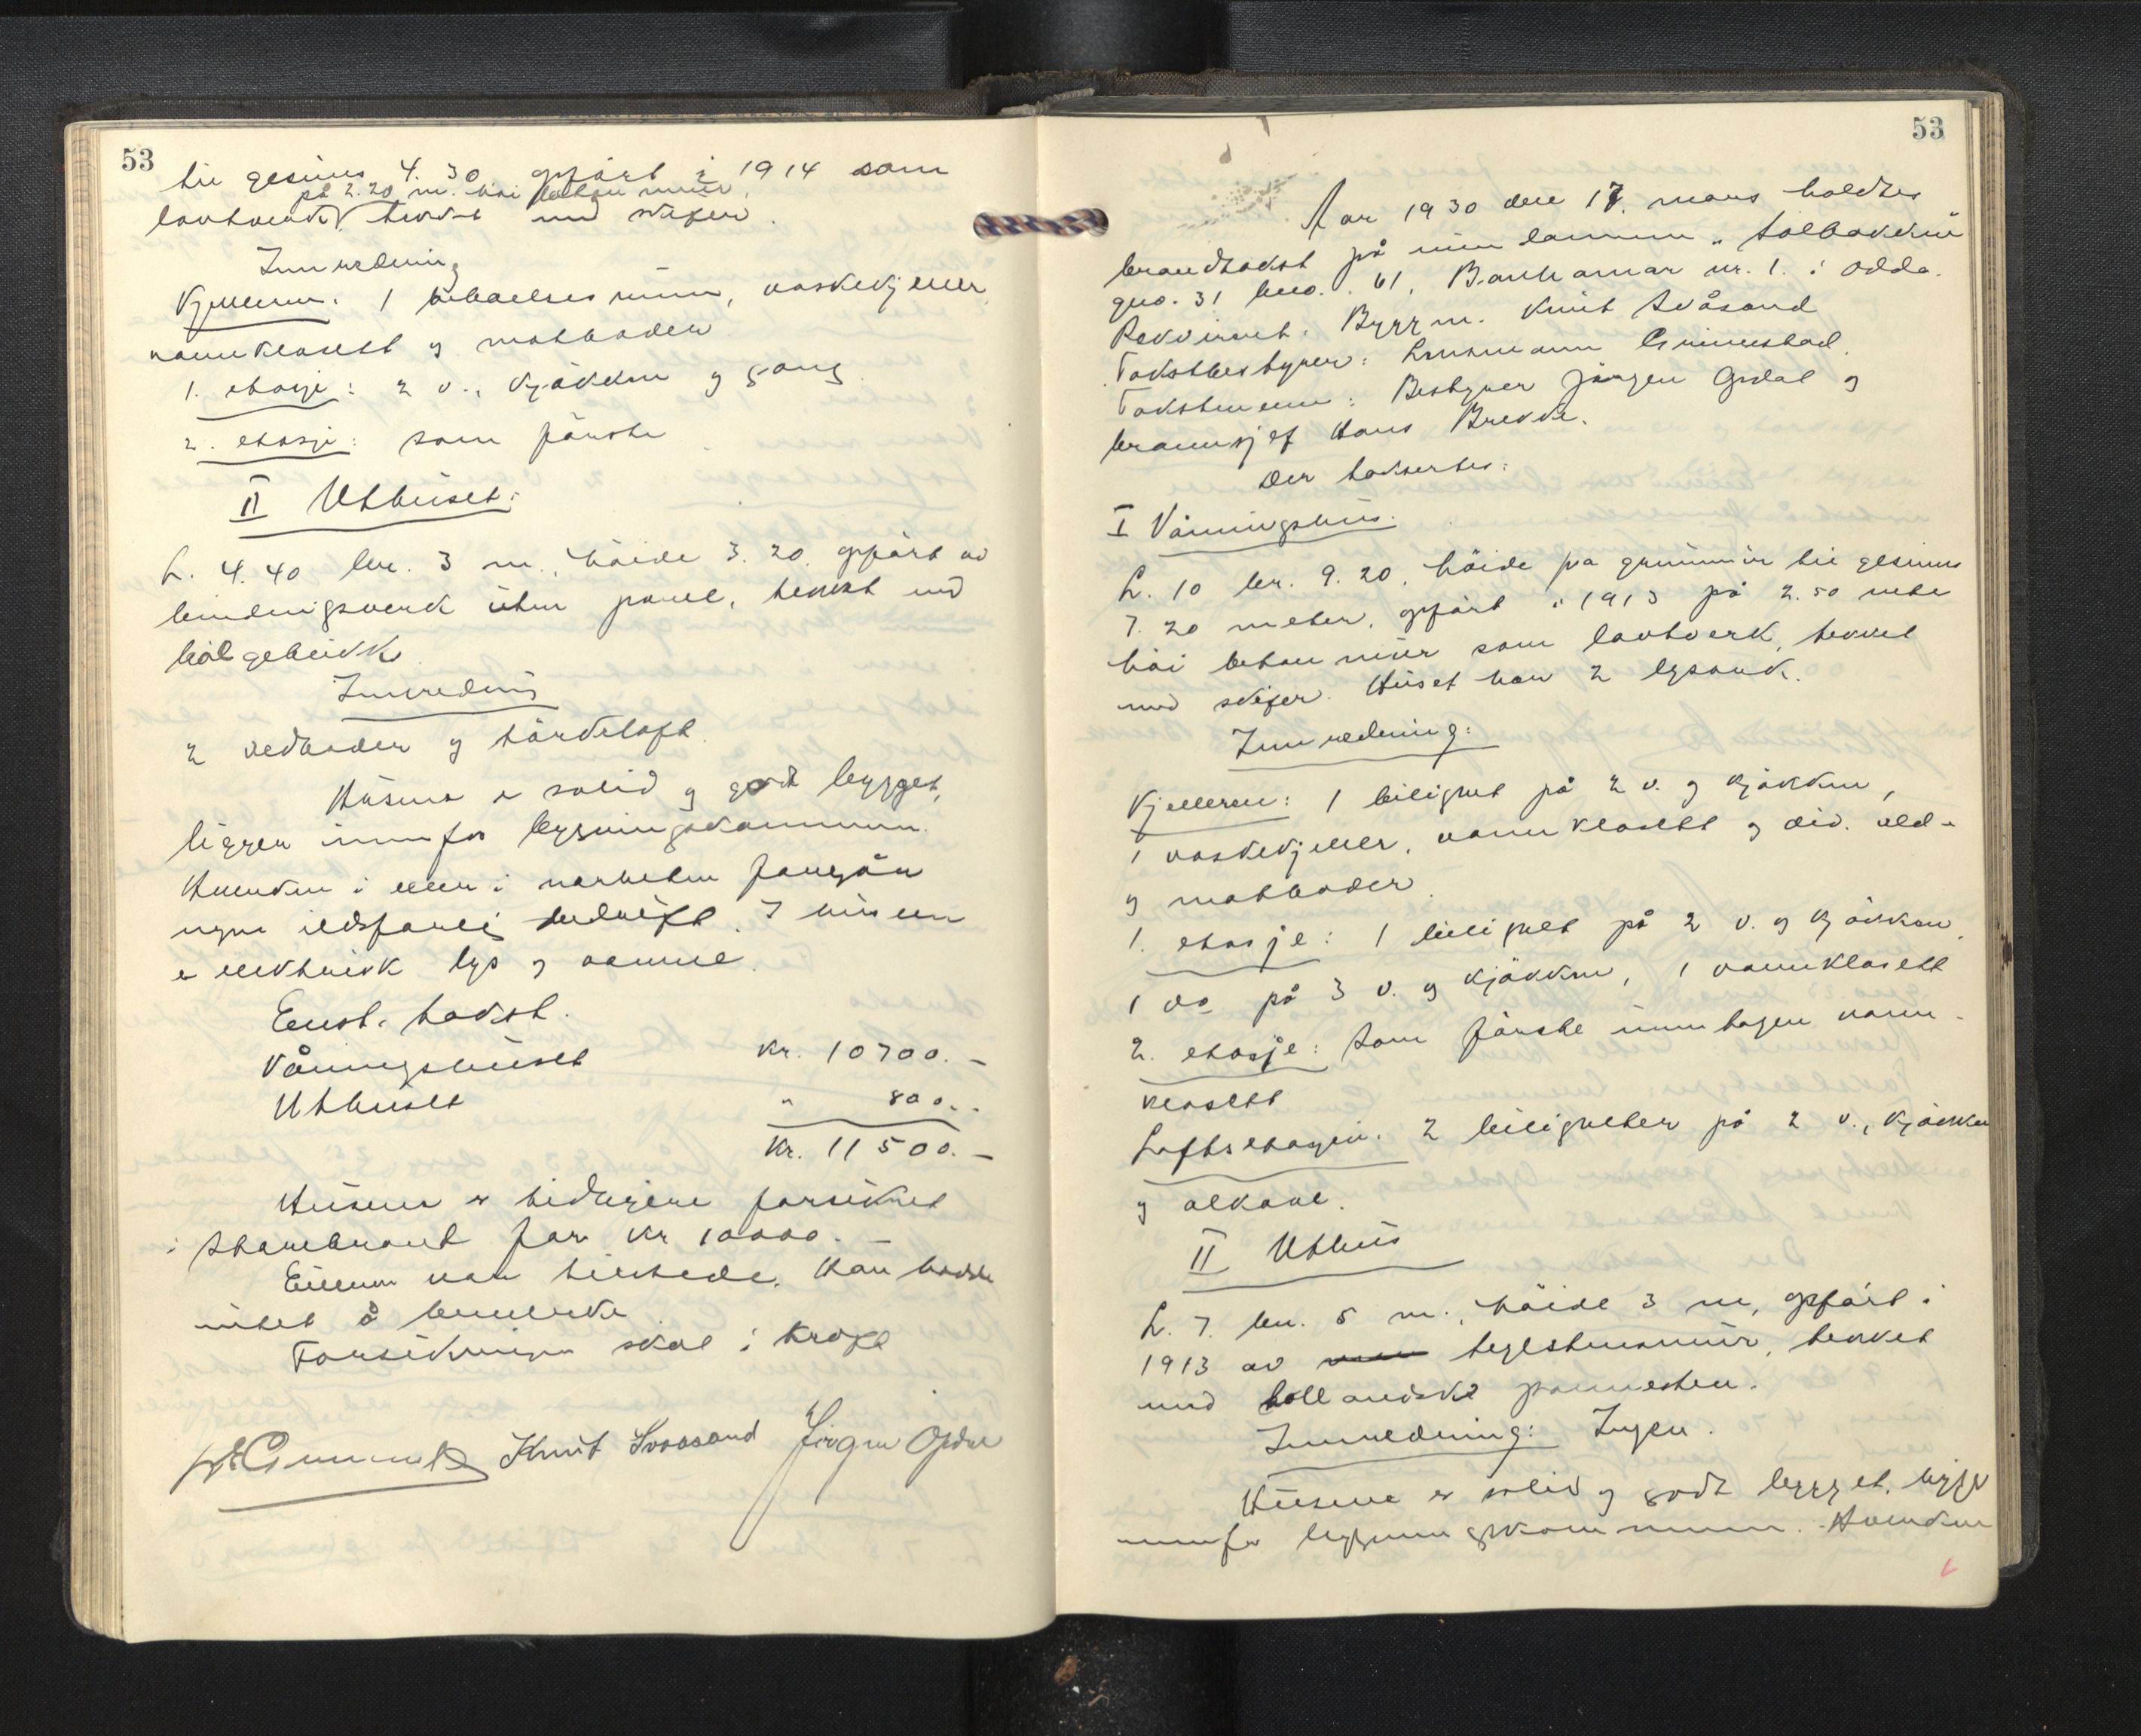 53
til gesims 4.30 opført i 1914 som
på 2.20 m. høi betonmur,
laftverk tekket med skifer.
Innredning
Kjelleren: 1 beboelsesrum, vaskekjeller
vannklosett og matboder
1. etasje: 2 v., kjøkken og gang
2. etasje: som første
II Uthuset:
L. 4.40 br. 3 m., høide 3.20. opført av
bindingsverk uten panel, tekket med
bølgeblikk
Innredning
2 vedboder og tørkeloft.
Husene er solid og godt bygget,
ligger innenfor bygningskommunen.
Hverken i eller i nærheten foregår
nogen ildsfarlig bedrift. I husene
er elektrisk lys og varme.
Enst. takst.
Våningshuset kr. 10700.-
Uthuset " 800.-
Kr. 11500.-
Husene er tidligere forsikret
i Storebrand for kr 10000.-
Eieren var tilstede. Han hadde
intet å bemerke
Forsikringen skal i kraft
Knut Svaasand Jørgen Opdal
53
Aar 1930 den 17. mars holdtes
brandtakst på eiendommen "Solbakken"
gno. 31 bno. 61, Bankamar nr. 1. i Odda.
Rekvirent: Byggm. Knut Svåsand
Takstbestyrer: Lensmann Grimestad.
Takstmenn: Bestyrer Jørgen Opdal og
brannsjef Hans Brekke.
Der taksertes:
I Våningshus.
L. 10 br. 9.20, høide fra grunnmur til gesims
7.20 meter, opført i 1913 på 2.50 meter
høi betonmur som laftverk, tekket
med skifer. Huset har 2 lysark.
Innredning:
Kjelleren: 1 leilighet på 2 v. og kjøkken,
1 vaskekjeller, vannklosett og div. ved-
og matboder.
1. etasje: 1 leilighet på 2 v. og kjøkken,
1 do på 3 v. og kjøkken, 1 vannklosett
2. etasje: Som første unntagen vann-
klosett
Loftsetagen: 2 leiligheter på 2 v., kjøkken
og alkove.
II Uthus
L. 7. br. 5 m., høide 3 m, opført i
1913 av teglstensmur, tekket
med hollandske pannesten.
Innredning: Ingen.
Husene er solid og godt bygget, ligger
innenfor bygningskommunen. Hverken